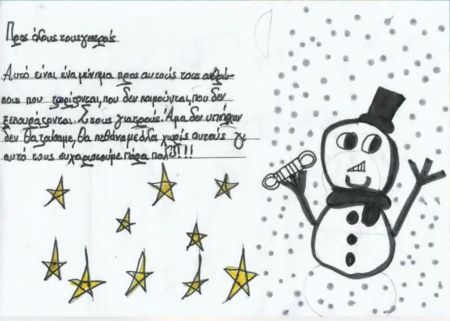 Προς όλους τους γιατρούς
Αυτό είναι ένα μήνυμα προς αυτούς τους ανθρώ-
πους που δεν κοιμούνται, που δεν
ξεκουράζονται. Στους γιατρούς. Άμα δεν υπήρχαν
δεν θα ζούσαμε, θα πεθάναμε όλοι χωρίς αυτούς γι
αυτό τους ευχαριστούμε πάρα πολύ!!!